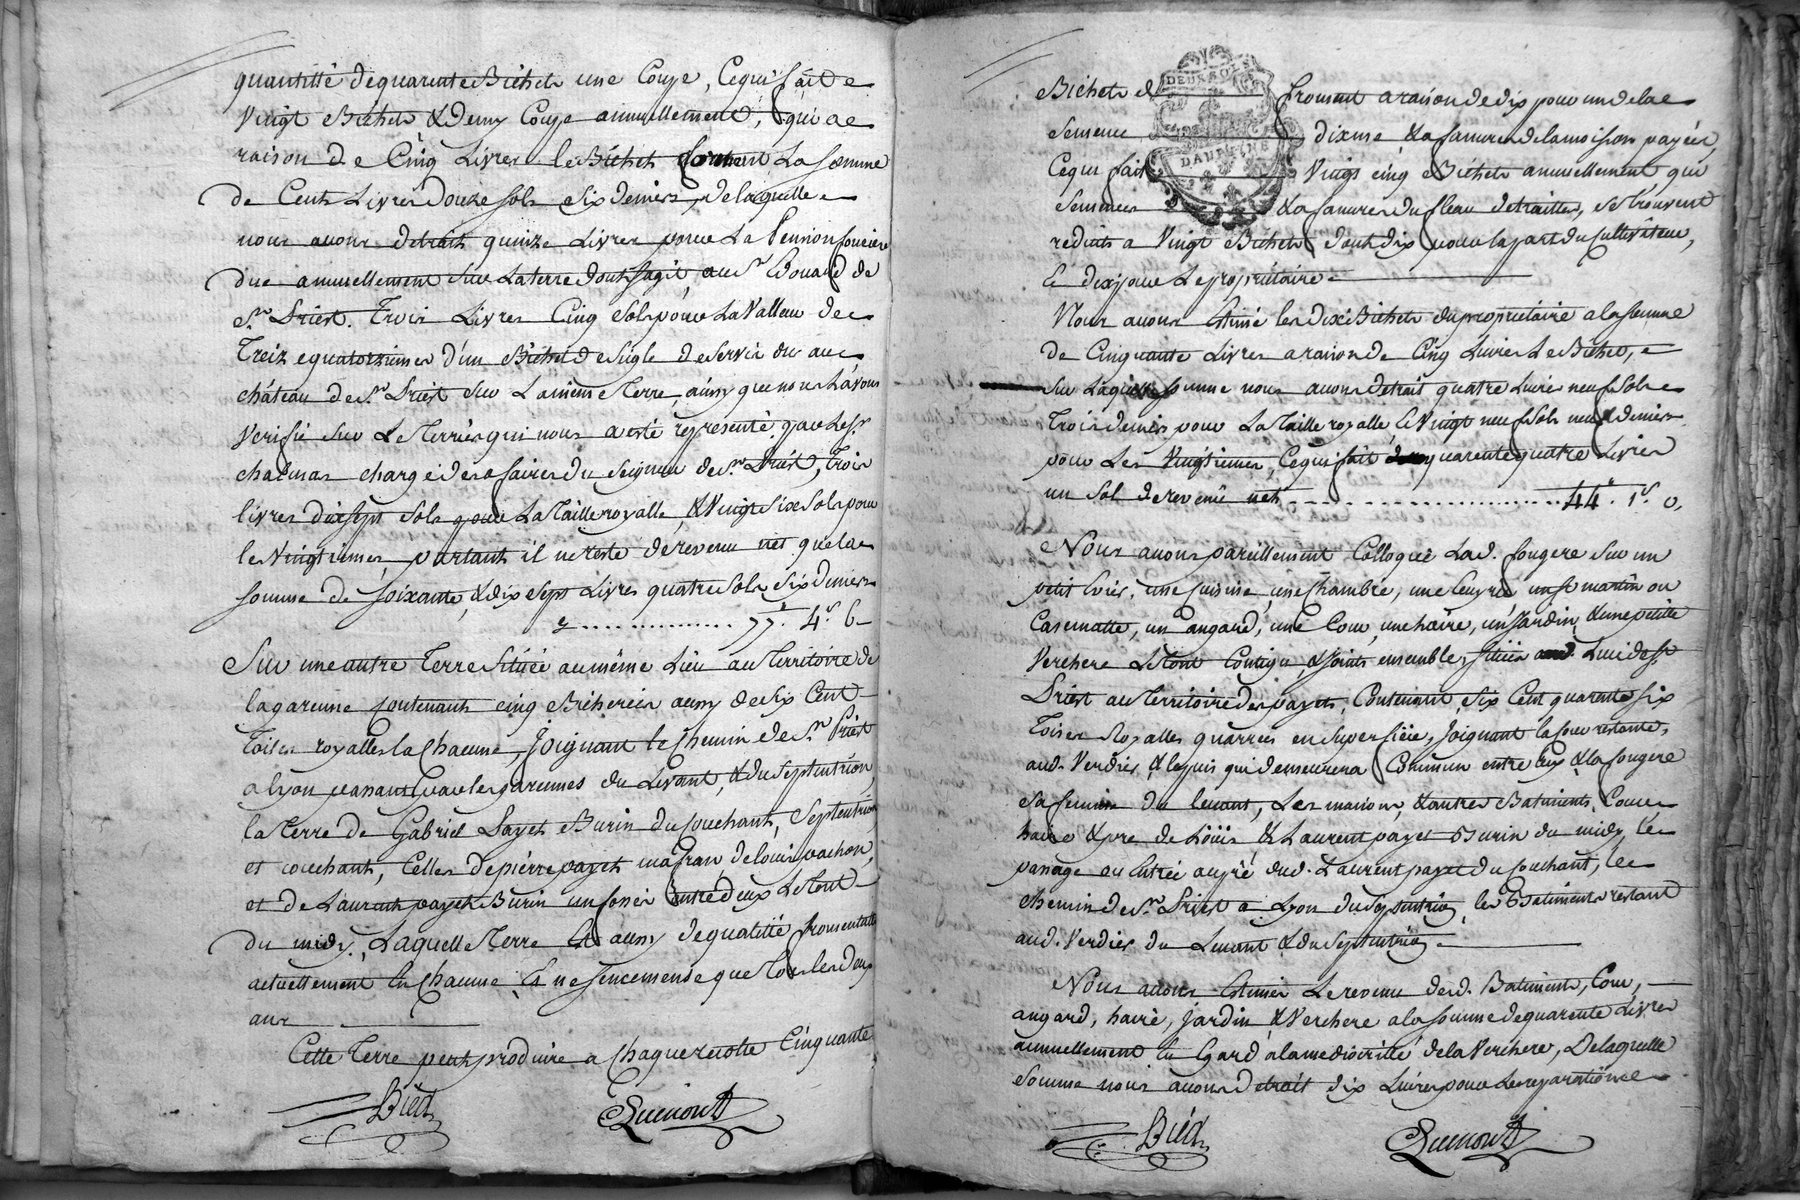 quantitté de quarente Bichets une Coupe, Cequi fait
Vingt Bichets & demy Coupe annuellement, qui a
raison de Cinq Livres le Bichet forment La somme
de Cents Livres Douze sols six deniers, de laquelle
nous avons detrait quinze Livres pour La Pension fonciere
due annuellement sur La terre dont sagit, au Sr. Edouard de
St. Priest. Trois Livres Cinq sols pour La Valleur de
Treiz equatorziemes d'un Bichet de sigle de servis du au
château de St. Priest sur La même Terre, ainsy que nous L'avons
Verifié sur Le Terrier qui nous a eté representé par Le Sr.
chalmas chargé des afaires du Seigneur de St. Priest, Trois
livres dixsept sols pour La Taille royalle, & Vingt six sols pour
les Vingtiemes, partant il ne reste de revenu net que la
somme de soixante, & dix sept Livres quatre sols six deniers
cy .............. 77.# 4.s 6
Sur une autre Terre Située au même Lieu au Territoire de
la garenne contenant cinq Bicherées aussy de six Cent
Toises royalles la Chacune, Joignant le Chemin de St. Priest
a Lyon passant par les garennes du Levant, & du Septentrion,
la Terre de Gabriel Payet Burin du couchant, Septentrion
et couchant, Celles de pierre payet mafran, de louis vachon,
et de Laurent payet Burin un fossé Entredeux Le tout
du midy, Laquelle Terre Est aussy de qualité fromentalle
actuellement En Chaume, & ne s'encemense que Tous les deux
ans
Cette Terre peut produire a Chaque recolte Cinquante
Bied
Quenout
DEUX SOLS
DAUPHINE
Bichets de froment a raison de dix pour un de la
semence dixme, & la fanure de la moisson payées,
Cequi fait Vingt cinq Bichets annuellement qui
semences & la fanures du fleau detraittes, se trouvent
reduits a Vingt Bichets dont dix pour la part du Cultivateur,
& dix pour Le proprietaire
Nous avons Estimé les dix Bichets du proprietaire a la somme
de Cinquante Livres a raison de Cinq Livres Le Bichet,
sur Laquelle somme nous avons detrait quatre Livres neuf sols
Trois deniers pour La Taille royalle, & Vingt neuf sols neuf deniers
pour Les Vingtiemes, Cequi fait quarente quatre Livres
un sol de revenu net .............. 44.# 1.s 0.
Nous avons pareillement Colloqué Lad. fougere sur un
petit une cuisine, une Chambre, une un St martin ou
Casematte, un angard, une Cour, une haire, un Jardin, & une petite
Verchere Le tout Contigu, & Joints ensembles, situés aud. Lieu de St.
Priest au Territoire des payets, Contenant six Cent quarente six
Toises Royalles quarrées en superficie, Joignant la Cour restante,
aud. Verdier, & le puis qui demeurera Commun entre Eux & la fougere
sa femme du levant, Les maisons, & autres Batiments, Cour
haire & pre de Loüis & Laurent payet Burin du midy, le
passage ou Entrée aupré dud. Laurent payet du couchant, le
chemin de St. Priest a Lyon du Septentrion, les Batiments restant
aud. Verdier du Levant & du Septentrion
Nous avons Estimés Le revenu desd. Batiments, Cour,
angard, haire, Jardin, & Verchere a la somme de quarente Livres
annuellement Eu Egard a la mediocrité de la Verchere, De laquelle
somme nous avons detrait dix Livres pour Les reparations
Bied
Quenout